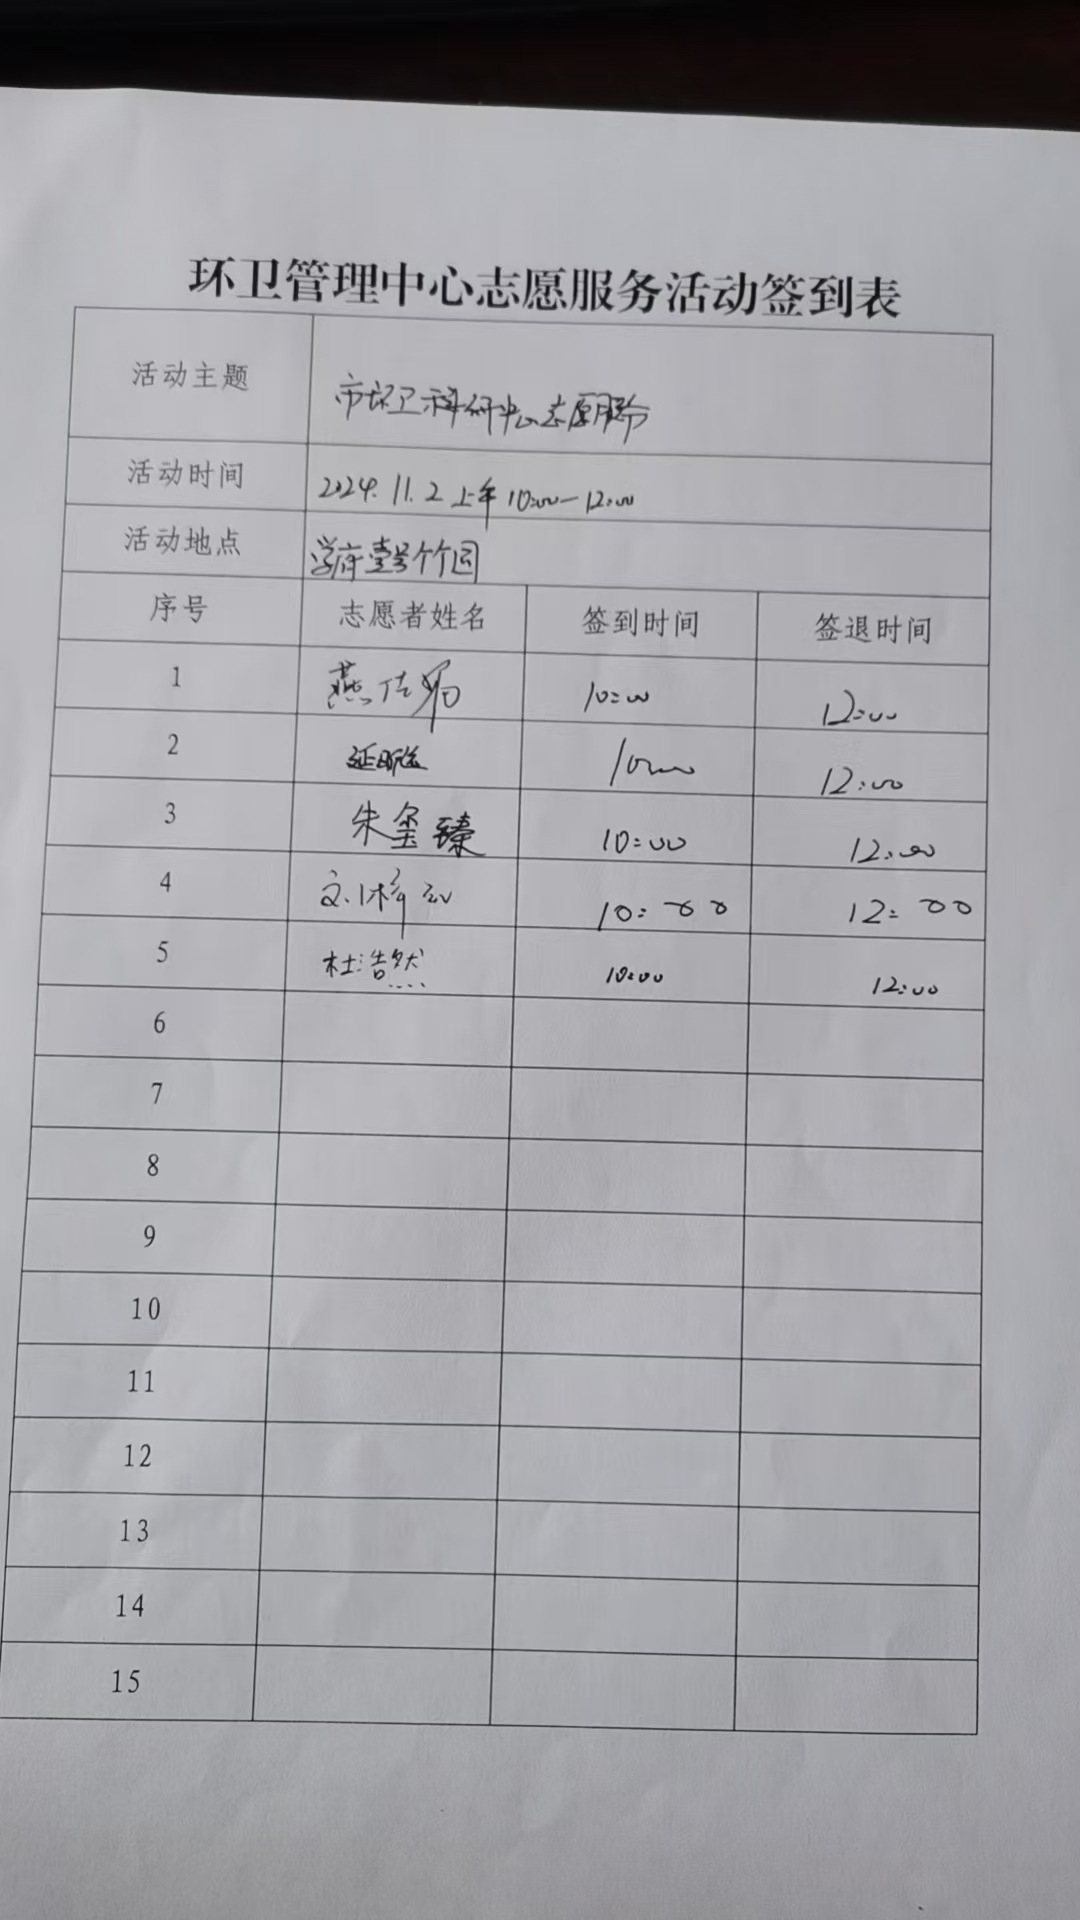 环卫管理中心志愿服务活动签到表
活动主题 市环卫科研中心志愿服务
活动时间 2024.11.2 上午 10:00—12:00
活动地点 学府壹号竹园
序号 志愿者姓名 签到时间 签退时间
1 燕 10:00 12:00
2 10:00 12:00
3 朱玺臻 10:00 12:00
4 10:00 12:00
5 杜浩然 10:00 12:00
6
7
8
9
10
11
12
13
14
15